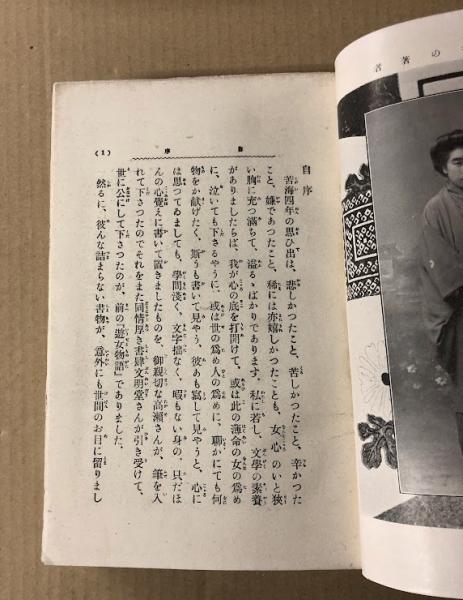 自序
苦海四年の思ひ出は、悲しかつたこと、苦しかつたこと、辛かつた
こと、嫌であつたこと、稀には亦嬉しかつたことも、女心のいと狹
い胸に充つ滿ちて、溢るゝばかりであります。私に若し、文學の素養
がありましたらば、我が心の底を打開けて、或は此の薄命の女の爲め
に、泣いても下さるやうに、或は世の爲め人の爲めに、聊かにても何
物をか献げたく、斯うも書いて見やう、彼あも寫して見やうと、心に
は思つてゐましても、學問淺く、文字拙なく、暇もない身の、只だほ
んの心覺えに書いて置きましたものを、御親切な高瀬さんが、筆を入
れて下さつたのでそれをまた同情厚き書肆文明堂さんが引き受けて、
世に公にして下さつたのが、前の『遊女物語』でありました。
然るに、彼んな詰まらない書物が、意外にも世間のお目に留りまし
自序
(1)
の著者